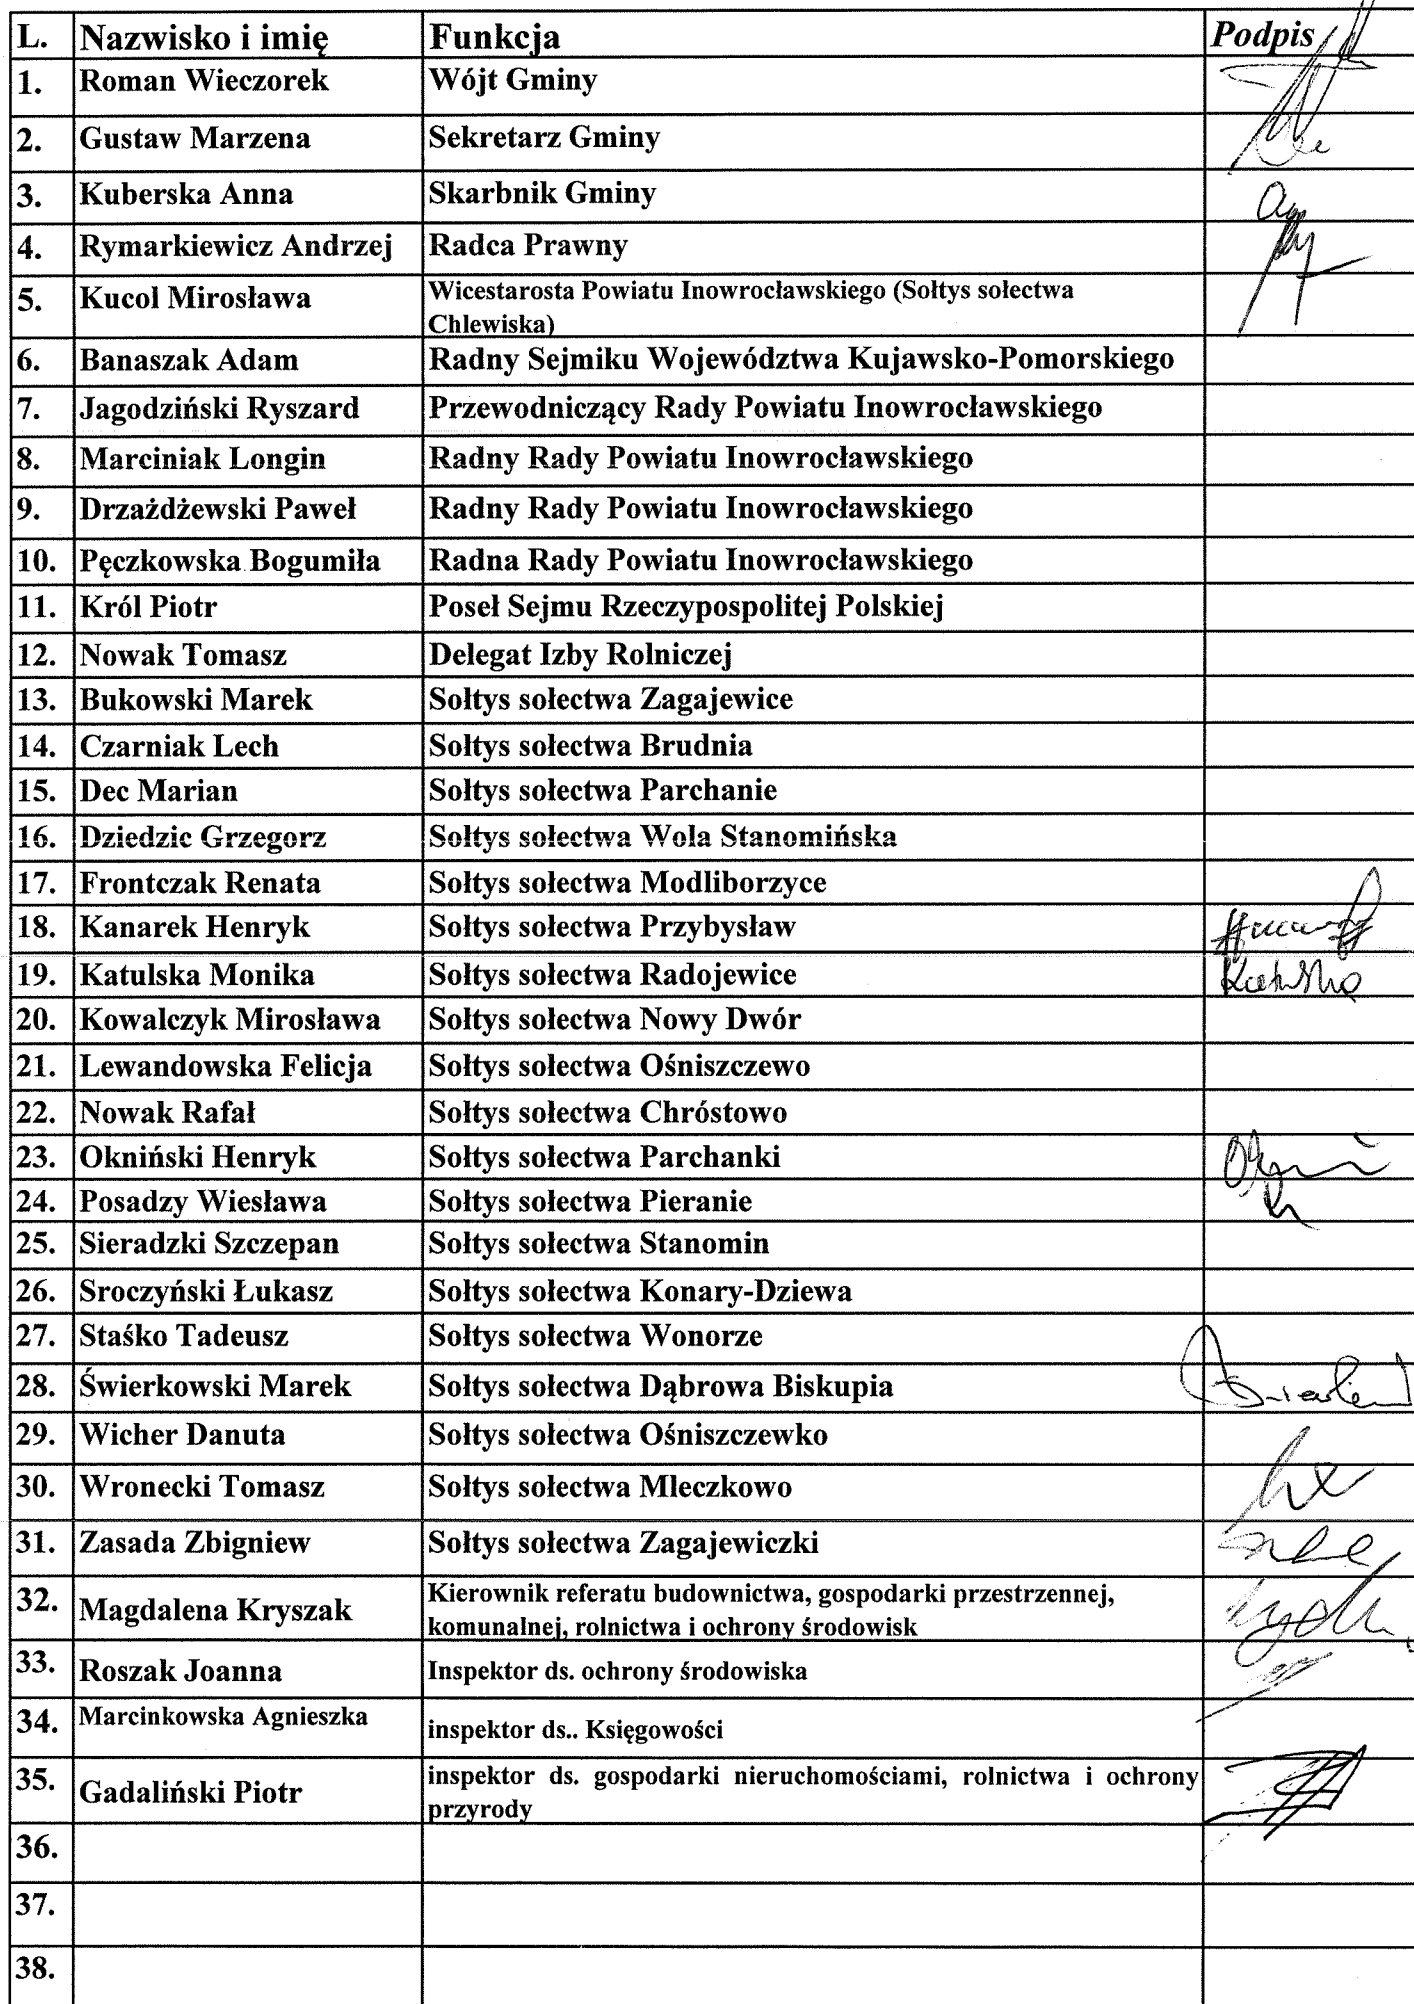 L. Nazwisko i imię Funkcja Podpis
1. Roman Wieczorek Wójt Gminy
2. Gustaw Marzena Sekretarz Gminy
3. Kuberska Anna Skarbnik Gminy
4. Rymarkiewicz Andrzej Radca Prawny
5. Kucol Mirosława Wicestarosta Powiatu Inowrocławskiego (Sołtys sołectwa
Chlewiska)
6. Banaszak Adam Radny Sejmiku Województwa Kujawsko-Pomorskiego
7. Jagodziński Ryszard Przewodniczący Rady Powiatu Inowrocławskiego
8. Marciniak Longin Radny Rady Powiatu Inowrocławskiego
9. Drzażdżewski Paweł Radny Rady Powiatu Inowrocławskiego
10. Pęczkowska Bogumiła Radna Rady Powiatu Inowrocławskiego
11. Król Piotr Poseł Sejmu Rzeczypospolitej Polskiej
12. Nowak Tomasz Delegat Izby Rolniczej
13. Bukowski Marek Sołtys sołectwa Zagajewice
14. Czarniak Lech Sołtys sołectwa Brudnia
15. Dec Marian Sołtys sołectwa Parchanie
16. Dziedzic Grzegorz Sołtys sołectwa Wola Stanomińska
17. Frontczak Renata Sołtys sołectwa Modliborzyce
18. Kanarek Henryk Sołtys sołectwa Przybysław
19. Katulska Monika Sołtys sołectwa Radojewice
20. Kowalczyk Mirosława Sołtys sołectwa Nowy Dwór
21. Lewandowska Felicja Sołtys sołectwa Ośniszczewo
22. Nowak Rafał Sołtys sołectwa Chróstowo
23. Okniński Henryk Sołtys sołectwa Parchanki
24. Posadzy Wiesława Sołtys sołectwa Pieranie
25. Sieradzki Szczepan Sołtys sołectwa Stanomin
26. Sroczyński Łukasz Sołtys sołectwa Konary-Dziewa
27. Staśko Tadeusz Sołtys sołectwa Wonorze
28. Świerkowski Marek Sołtys sołectwa Dąbrowa Biskupia
29. Wicher Danuta Sołtys sołectwa Ośniszczewko
30. Wronecki Tomasz Sołtys sołectwa Mleczkowo
31. Zasada Zbigniew Sołtys sołectwa Zagajewiczki
32. Magdalena Kryszak Kierownik referatu budownictwa, gospodarki przestrzennej,
komunalnej, rolnictwa i ochrony środowisk
33. Roszak Joanna Inspektor ds. ochrony środowiska
34. Marcinkowska Agnieszka inspektor ds.. Księgowości
35. Gadaliński Piotr inspektor ds. gospodarki nieruchomościami, rolnictwa i ochrony
przyrody
36.
37.
38.